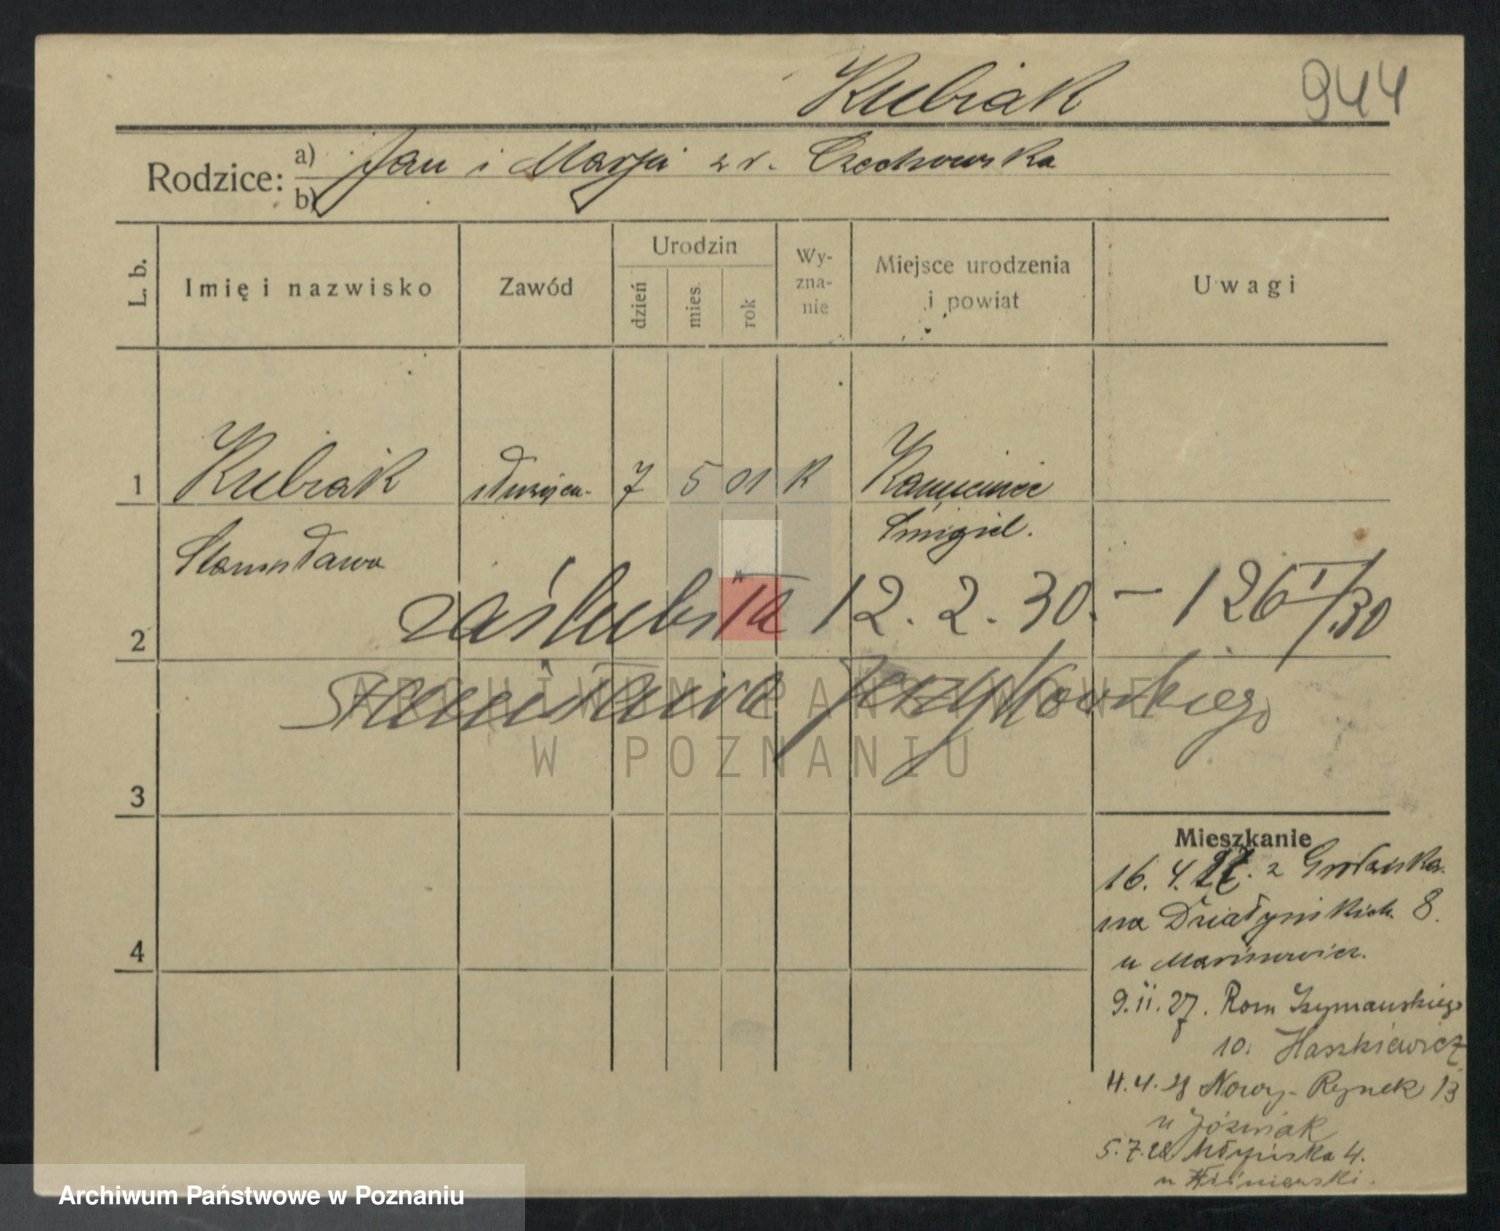 Kubiak 944
Rodzice: a) Jan i Marja z r. Czechowska
b)
L. b. Imię i nazwisko Zawód Urodzin dzień mies. rok Wy-zna-nie Miejsce urodzenia i powiat Uwagi
1 Kubiak służąca. 7 5 01 K Kamieniec
Stanisława Śmigiel.
zaślubiła 12. 2. 30. – 126 I/30
2
Stanisława Jerzykowskiego
3
Mieszkanie
16. 4. 27. z
na Działyńskich 8.
u
4
9. 11. 27. Rom Szymańskiego
10. Haszkiewicz
4. 4. 28 Nowy-Rynek 13
u Jóźwiak
5. 7. 28 Młyńska 4.
u
ARCHIWUM PAŃSTWOWE
W POZNANIU
Archiwum Państwowe w Poznaniu